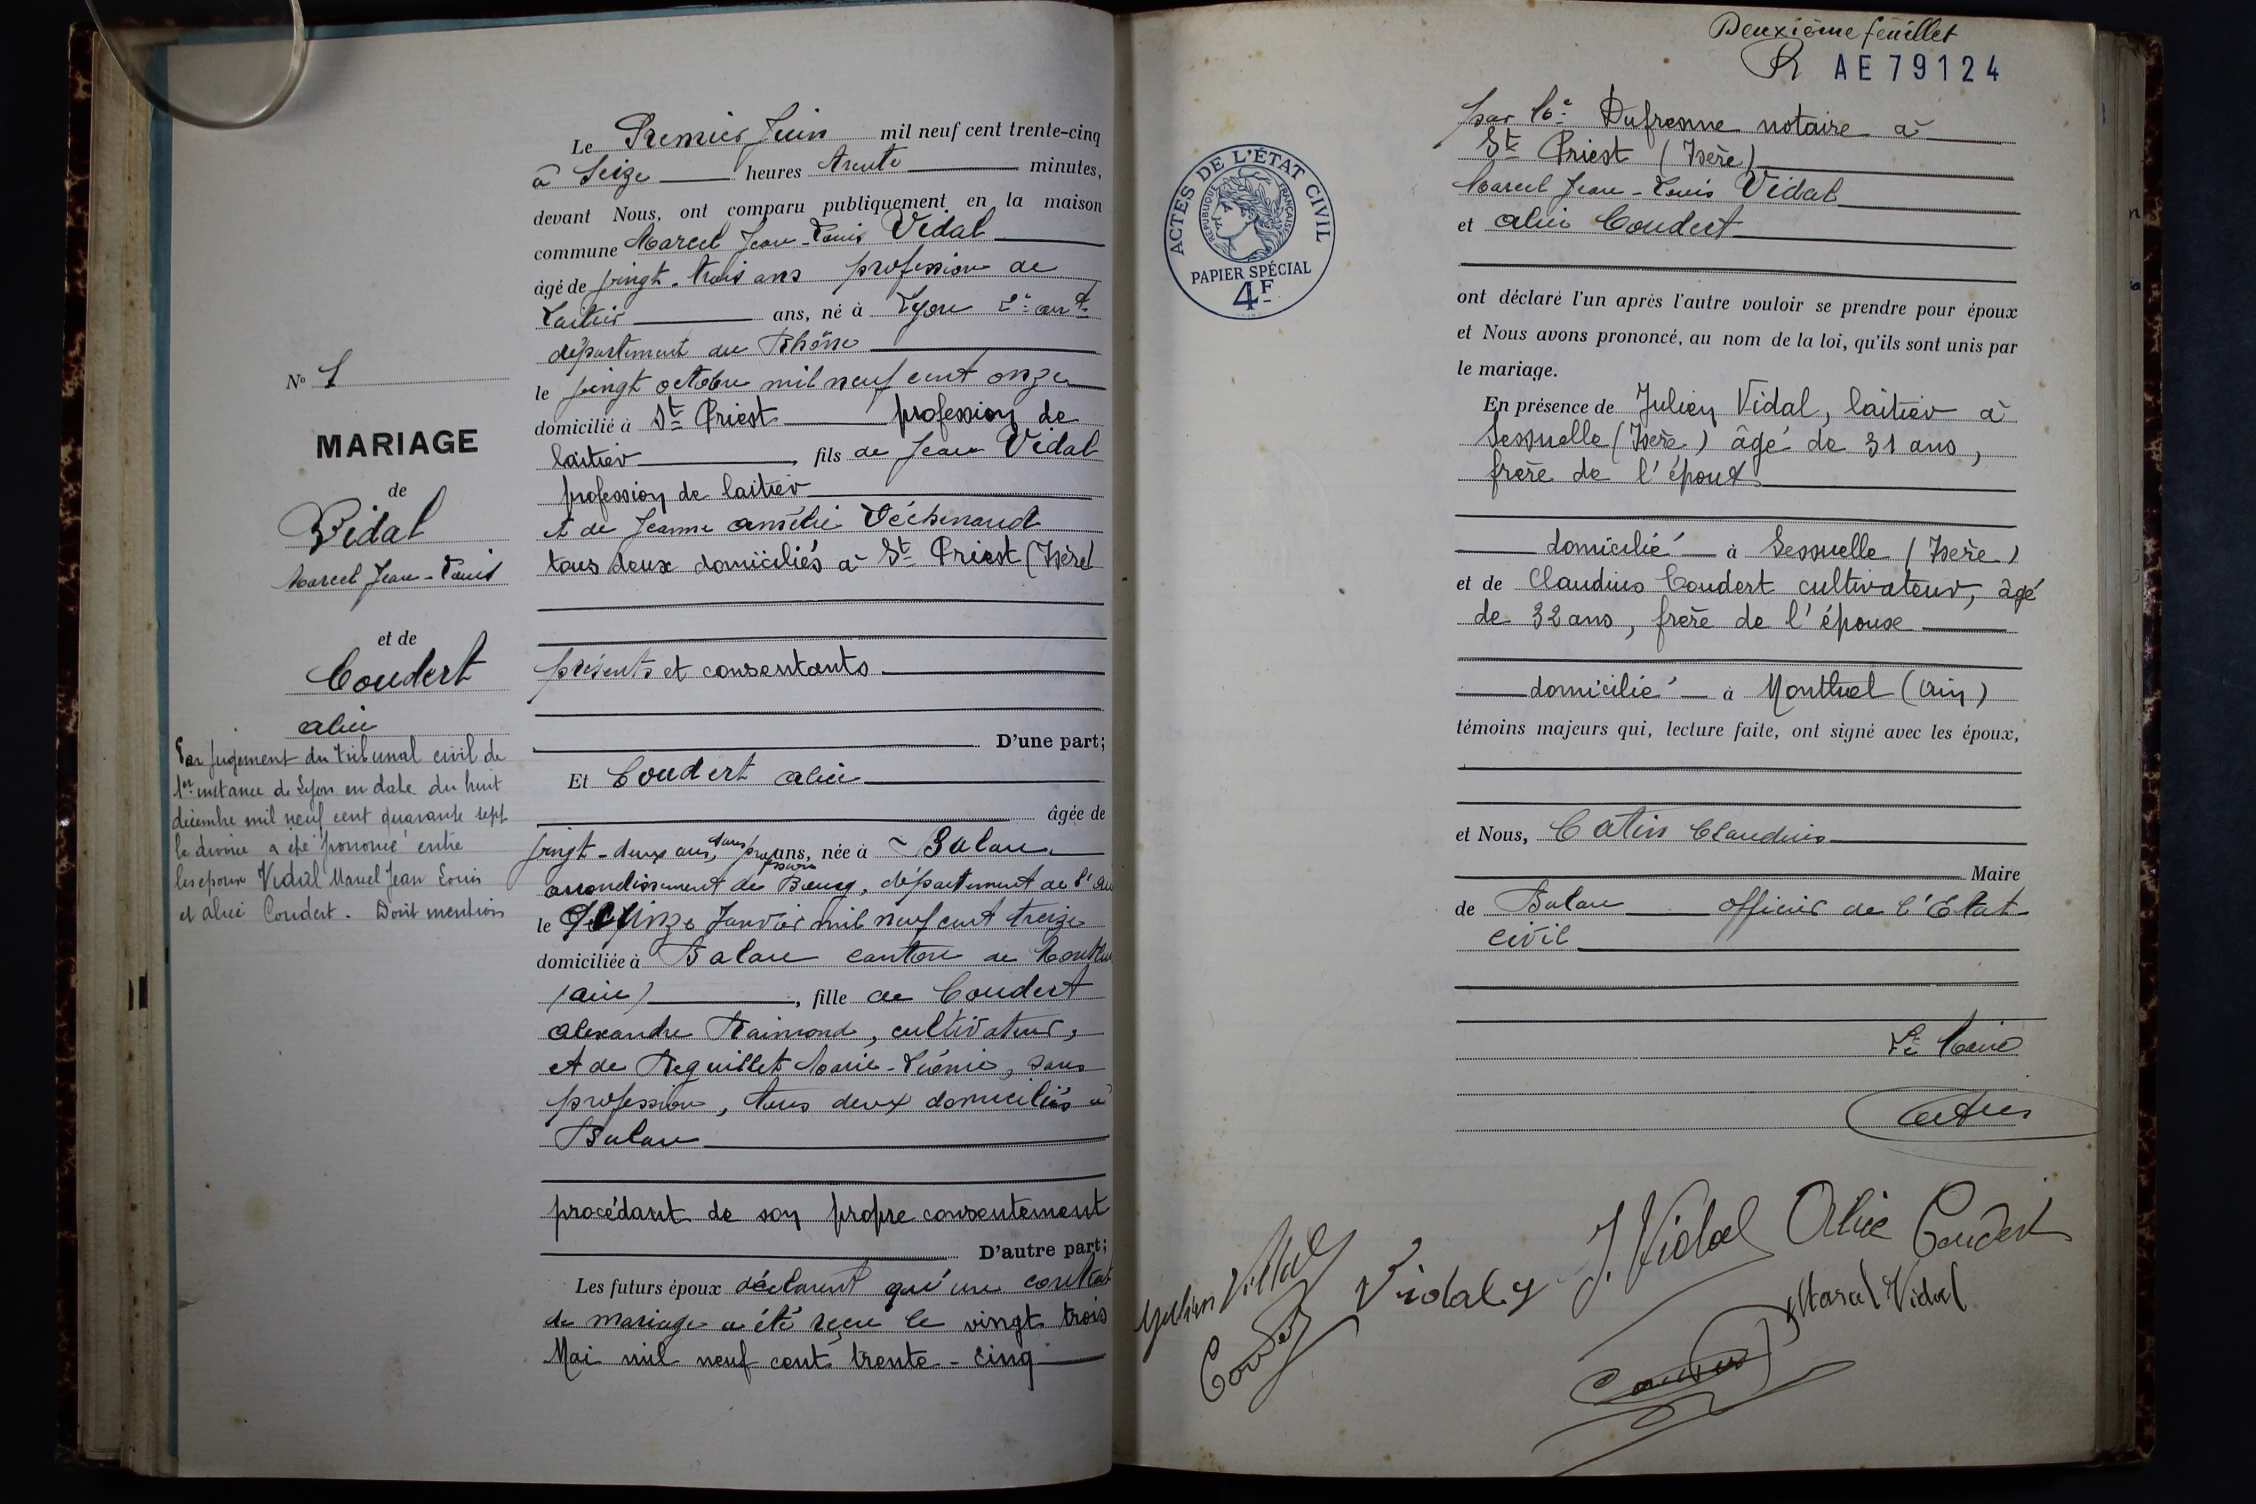 Le Premier Juin mil neuf cent trente-cinq
à Seize heures trente minutes,
devant Nous, ont comparu publiquement en la maison
commune Marcel Jean-Louis Vidal
âgé de vingt-trois ans profession de
Laitier ans, né à Lyon 2e arrt
département du Rhône
le vingt octobre mil neuf cent onze
domicilié à St Priest profession de
laitier, fils de Jean Vidal
profession de laitier
et de Jeanne Amélie
tous deux domiciliés à St Priest (Isère)
présents et consentants
D'une part;
Et Coudert Alice
âgée de
vingt-deux ans, sans profession ans, née à Balan
arrondissement de Bourg, département de l'Ain
le Quinze Janvier mil neuf cent treize
domiciliée à Balan canton de Montluel
(Ain), fille de Coudert
Alexandre Raimond, cultivateur,
et de Reguillet Marie-, sans
profession, tous deux domiciliés à
Balan
procédant de son propre consentement
D'autre part;
Les futurs époux déclarent qu'un contrat
de mariage a été reçu le vingt trois
Mai mil neuf cent trente-cinq
No 1
MARIAGE
de
Vidal
Marcel Jean-Louis
et de
Coudert
Alice
Par jugement du tribunal civil de
1ere instance de Lyon en date du huit
décembre mil neuf cent quarante sept
le divorce a été prononcé entre
les époux Vidal Marcel Jean Louis
et Alice Coudert. Dont mention
Deuxième feuillet
AE79124
ACTES DE L'ÉTAT CIVIL
RÉPUBLIQUE FRANÇAISE
PAPIER SPÉCIAL
4F
par Me Dufresne notaire à
St Priest (Isère)
Marcel Jean-Louis Vidal
et Alice Coudert
ont déclaré l'un après l'autre vouloir se prendre pour époux
et Nous avons prononcé, au nom de la loi, qu'ils sont unis par
le mariage.
En présence de Julien Vidal, laitier à
Sessuelle (Isère) âgé de 31 ans,
frère de l'époux
domicilié à Sessuelle (Isère)
et de Claudius Coudert cultivateur, âgé
de 32 ans, frère de l'épouse
domicilié à Montluel (Ain)
témoins majeurs qui, lecture faite, ont signé avec les époux,
et Nous, Catin Claudius
Maire
de Balan officier de l'Etat
civil
Le Maire
Catin
Julien Vidal
Vidal
J. Vidal
Alice Coudert
Coudert
Marcel Vidal
Coudert